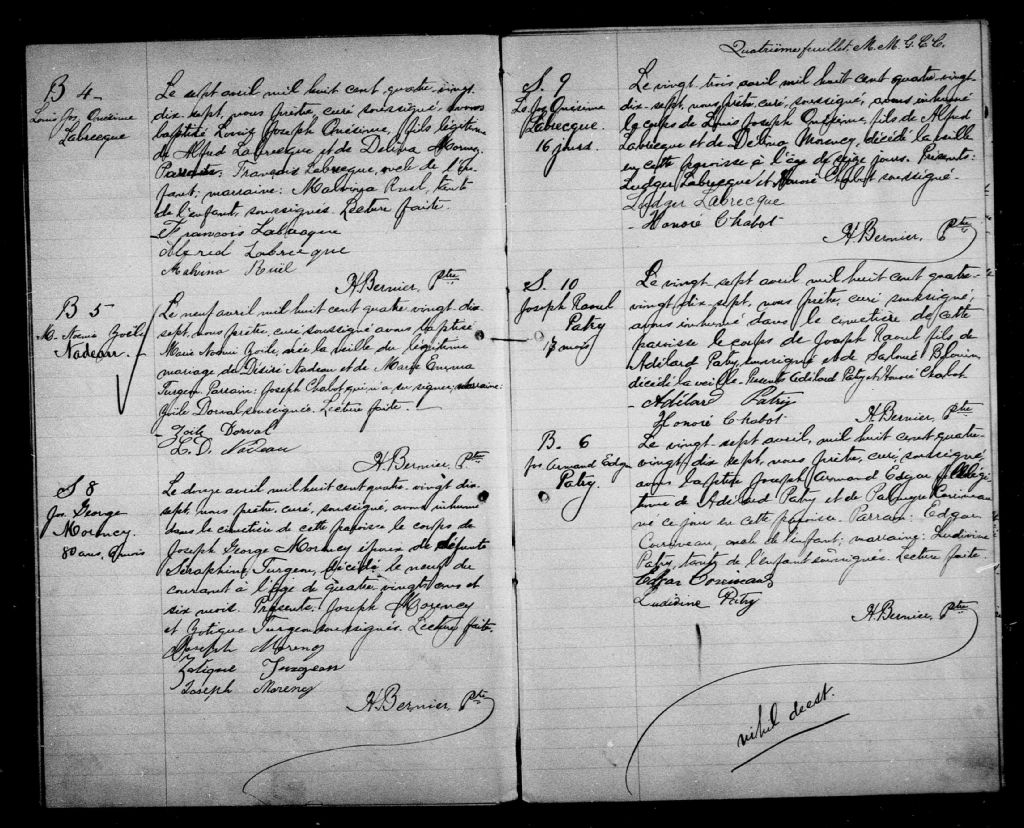 B 4 -
Louis Jos. Onésime
Labrecque
Le sept avril mil huit cent quatre-vingt
dix-sept, nous prêtre, curé soussigné, avons
baptisé Louis Joseph Onésime, fils légitime
de Alfred Labrecque et de Delina Morency.
Parrain: François Labrecque, oncle de l'en-
fant; marraine: Malvina Ruel, tante
de l'enfant, soussignés. Lecture faite.
Francois Labrecque
Alfred Labrecque
Malvina Ruël
H. Bernier, Ptre
B 5
M. Noémie Zoile
Nadeau.
Le neuf avril mil huit cent quatre vingt dix
sept, nous prêtre, curé, soussigné avons baptisé
Marie Noémi Zoile, née la veille du légitime
mariage de Désiré Nadeau et de Marie Emma
Turgeon. Parrain: Joseph Chabot, qui n'a su signer, marraine:
Zoïle Dorval, soussignée. Lecture faite.
Zoile Dorval
L. D. Nadeau
H. Bernier, Ptre
S 8
Jos. George
Morency.
80 ans, 6 mois
Le douze avril mil huit cent quatre-vingt dix
sept, nous prêtre, curé, soussigné, avons inhumé
dans le cimetière de cette paroisse le corps de
Joseph George Morency époux de défunte
Séraphine Turgeon, décédé le neuf du
courant à l'âge de quatre vingts ans et
six mois. Présents: Joseph Morency
et Zotique Turgeon soussignés. Lecture faite.
Joseph Morency
Zotique Turgeon
Joseph Morency
H. Bernier, Ptre
Quatrième feuillet. M. M. G. C. C.
S. 9
Ls Jos. Onésime
Labrecque.
16 jours.
Le vingt trois avril mil huit cent quatre-vingt-
dix-sept, nous prêtre, curé, soussigné, avons inhumé
le corps de Louis Joseph Onésime, fils de Alfred
Labrecque et de Delina Morency, décédé la veille
en cette paroisse à l'âge de seize jours. Présents:
Ludger Labrecque et Honoré Chabot soussigné.
Ludger Labrecque
- Honoré Chabot
H. Bernier, Ptre
S. 10
Joseph Raoul
Patry
17 mois
Le vingt sept avril mil huit cent quatre-
vingt-dix-sept, nous prêtre, curé soussigné,
avons inhumé dans le cimetière de cette
paroisse le corps de Joseph Raoul fils de
Adélard Patry, soussigné et de Salomé Blouin
décédé la veille. Présents Adélard Patry et Honoré Chabot
- Adélard Patry
Honoré Chabot
H. Bernier, Ptre
B. 6
Jos. Armand Edgar
Patry.
Le vingt sept avril, mil huit cent quatre-
vingt, dix sept, nous prêtre, curé, soussigné,
avons baptisé Joseph Armand Edgar fils légi-
time de Adélard Patry et de Corriveau
né ce jour en cette paroisse. Parrain: Edgar
Corriveau, oncle de l'enfant; marraine: Ludivine
Patry, tante de l'enfant soussignés. Lecture faite.
Edgar Corriveau
Ludivine Patry
H. Bernier, Ptre
nihil deest.